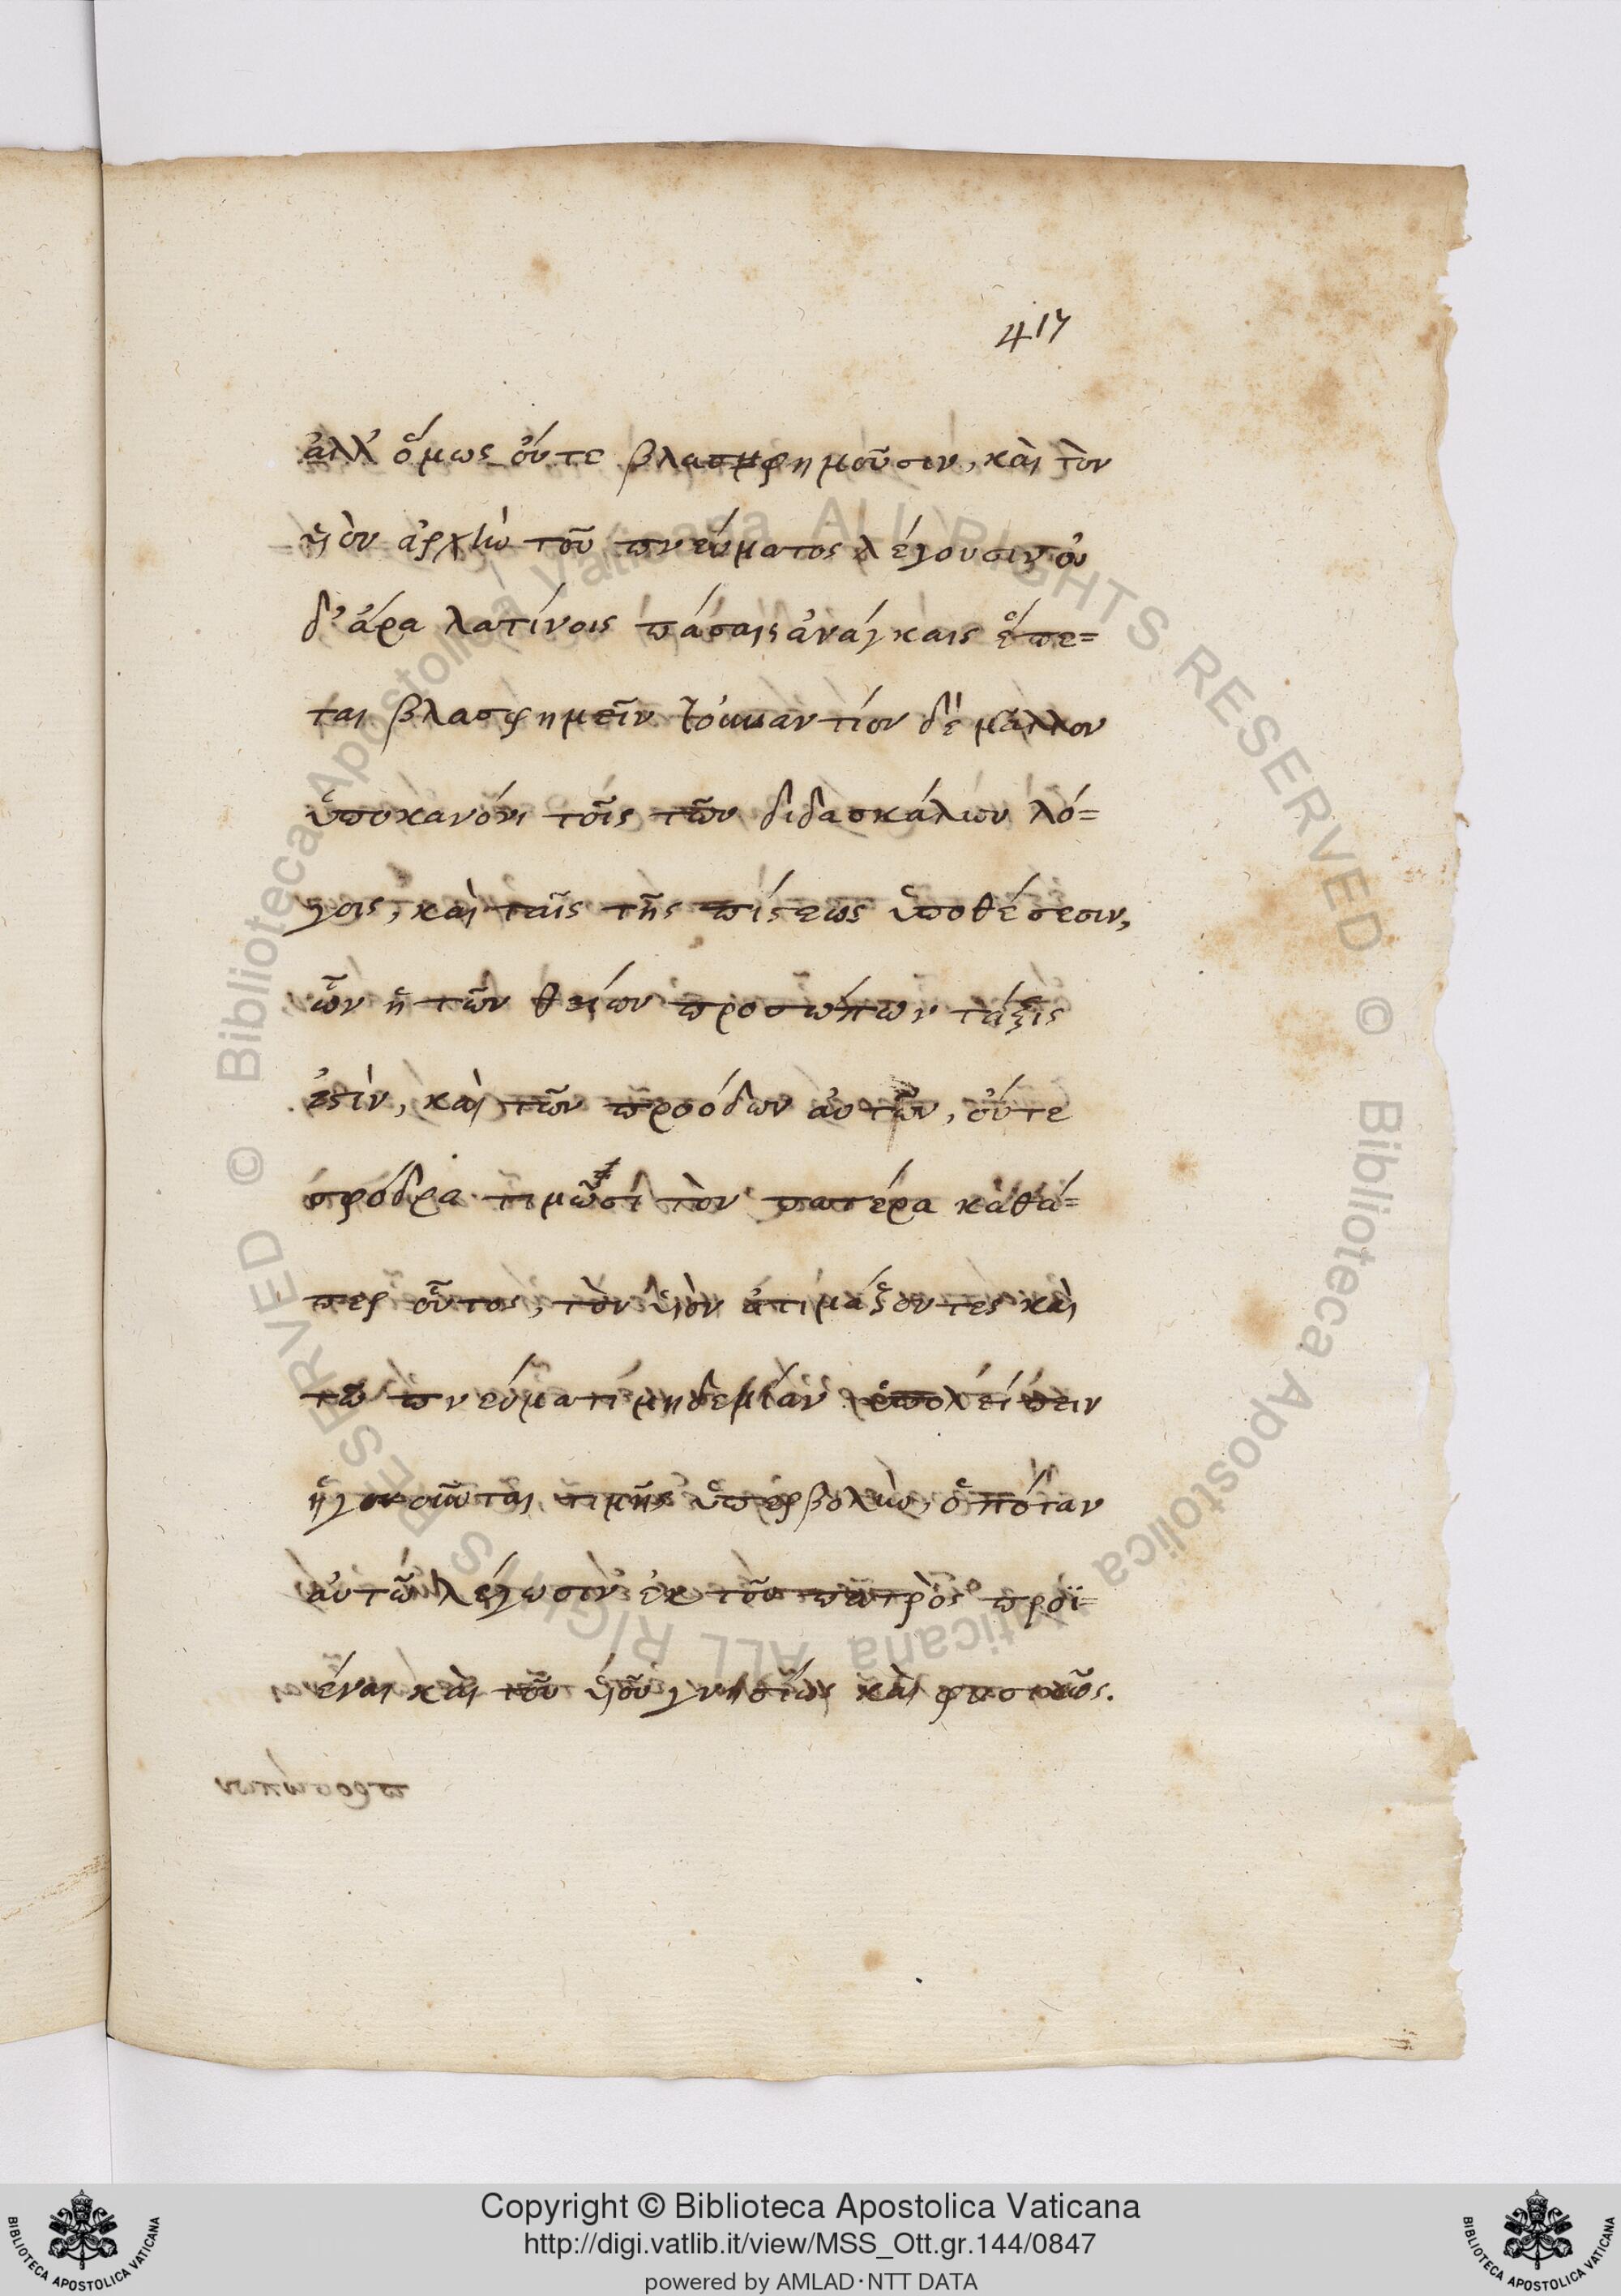 417
ἀλλ' ὅμως οὔτε βλασφημοῦσιν, καὶ τὸν
υἱὸν ἀρχὴν τοῦ πνεύματος λέγουσιν οὐ
δ' ἄρα λατίνοις πάσαις ἀνάγκαις ἕπε=
ται βλασφημεῖν τοὐναντίον δὲ μᾶλλον
τοῖς τῶν διδασκάλων λό=
γοις, καὶ ταῖς τῆς πίστεως ὑποθέσεσιν,
ὧν ἡ τῶν θείων προσώπων τάξις
ἐστὶν, καὶ τῶν προόδων αὐτῶν, οὔτε
σφόδρα τιμῶσι τὸν πατέρα καθά=
περ οὗτος, τὸν υἱὸν ἀτιμάζοντες καὶ
τῶ πνεύματι μηδεμίαν
τιμῆς ὑπερβολὴν, ὁπόταν
αὐτῶ λέγωσιν ἐκ τοῦ πατρὸς προϊ=
έναι καὶ τοῦ υἱοῦ γνησίως καὶ φυσικῶς.
Biblioteca Apostolica Vaticana ALL RIGHTS RESERVED ©
Biblioteca Apostolica Vaticana ALL RIGHTS RESERVED ©
Copyright © Biblioteca Apostolica Vaticana
http://digi.vatlib.it/view/MSS_Ott.gr.144/0847
powered by AMLAD·NTT DATA
BIBLIOTECA APOSTOLICA VATICANA
BIBLIOTECA APOSTOLICA VATICANA